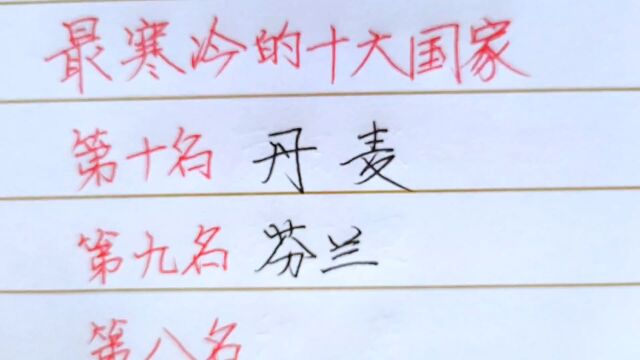 最寒冷的十大国家
第十名 丹麦
第九名 芬兰
第八名